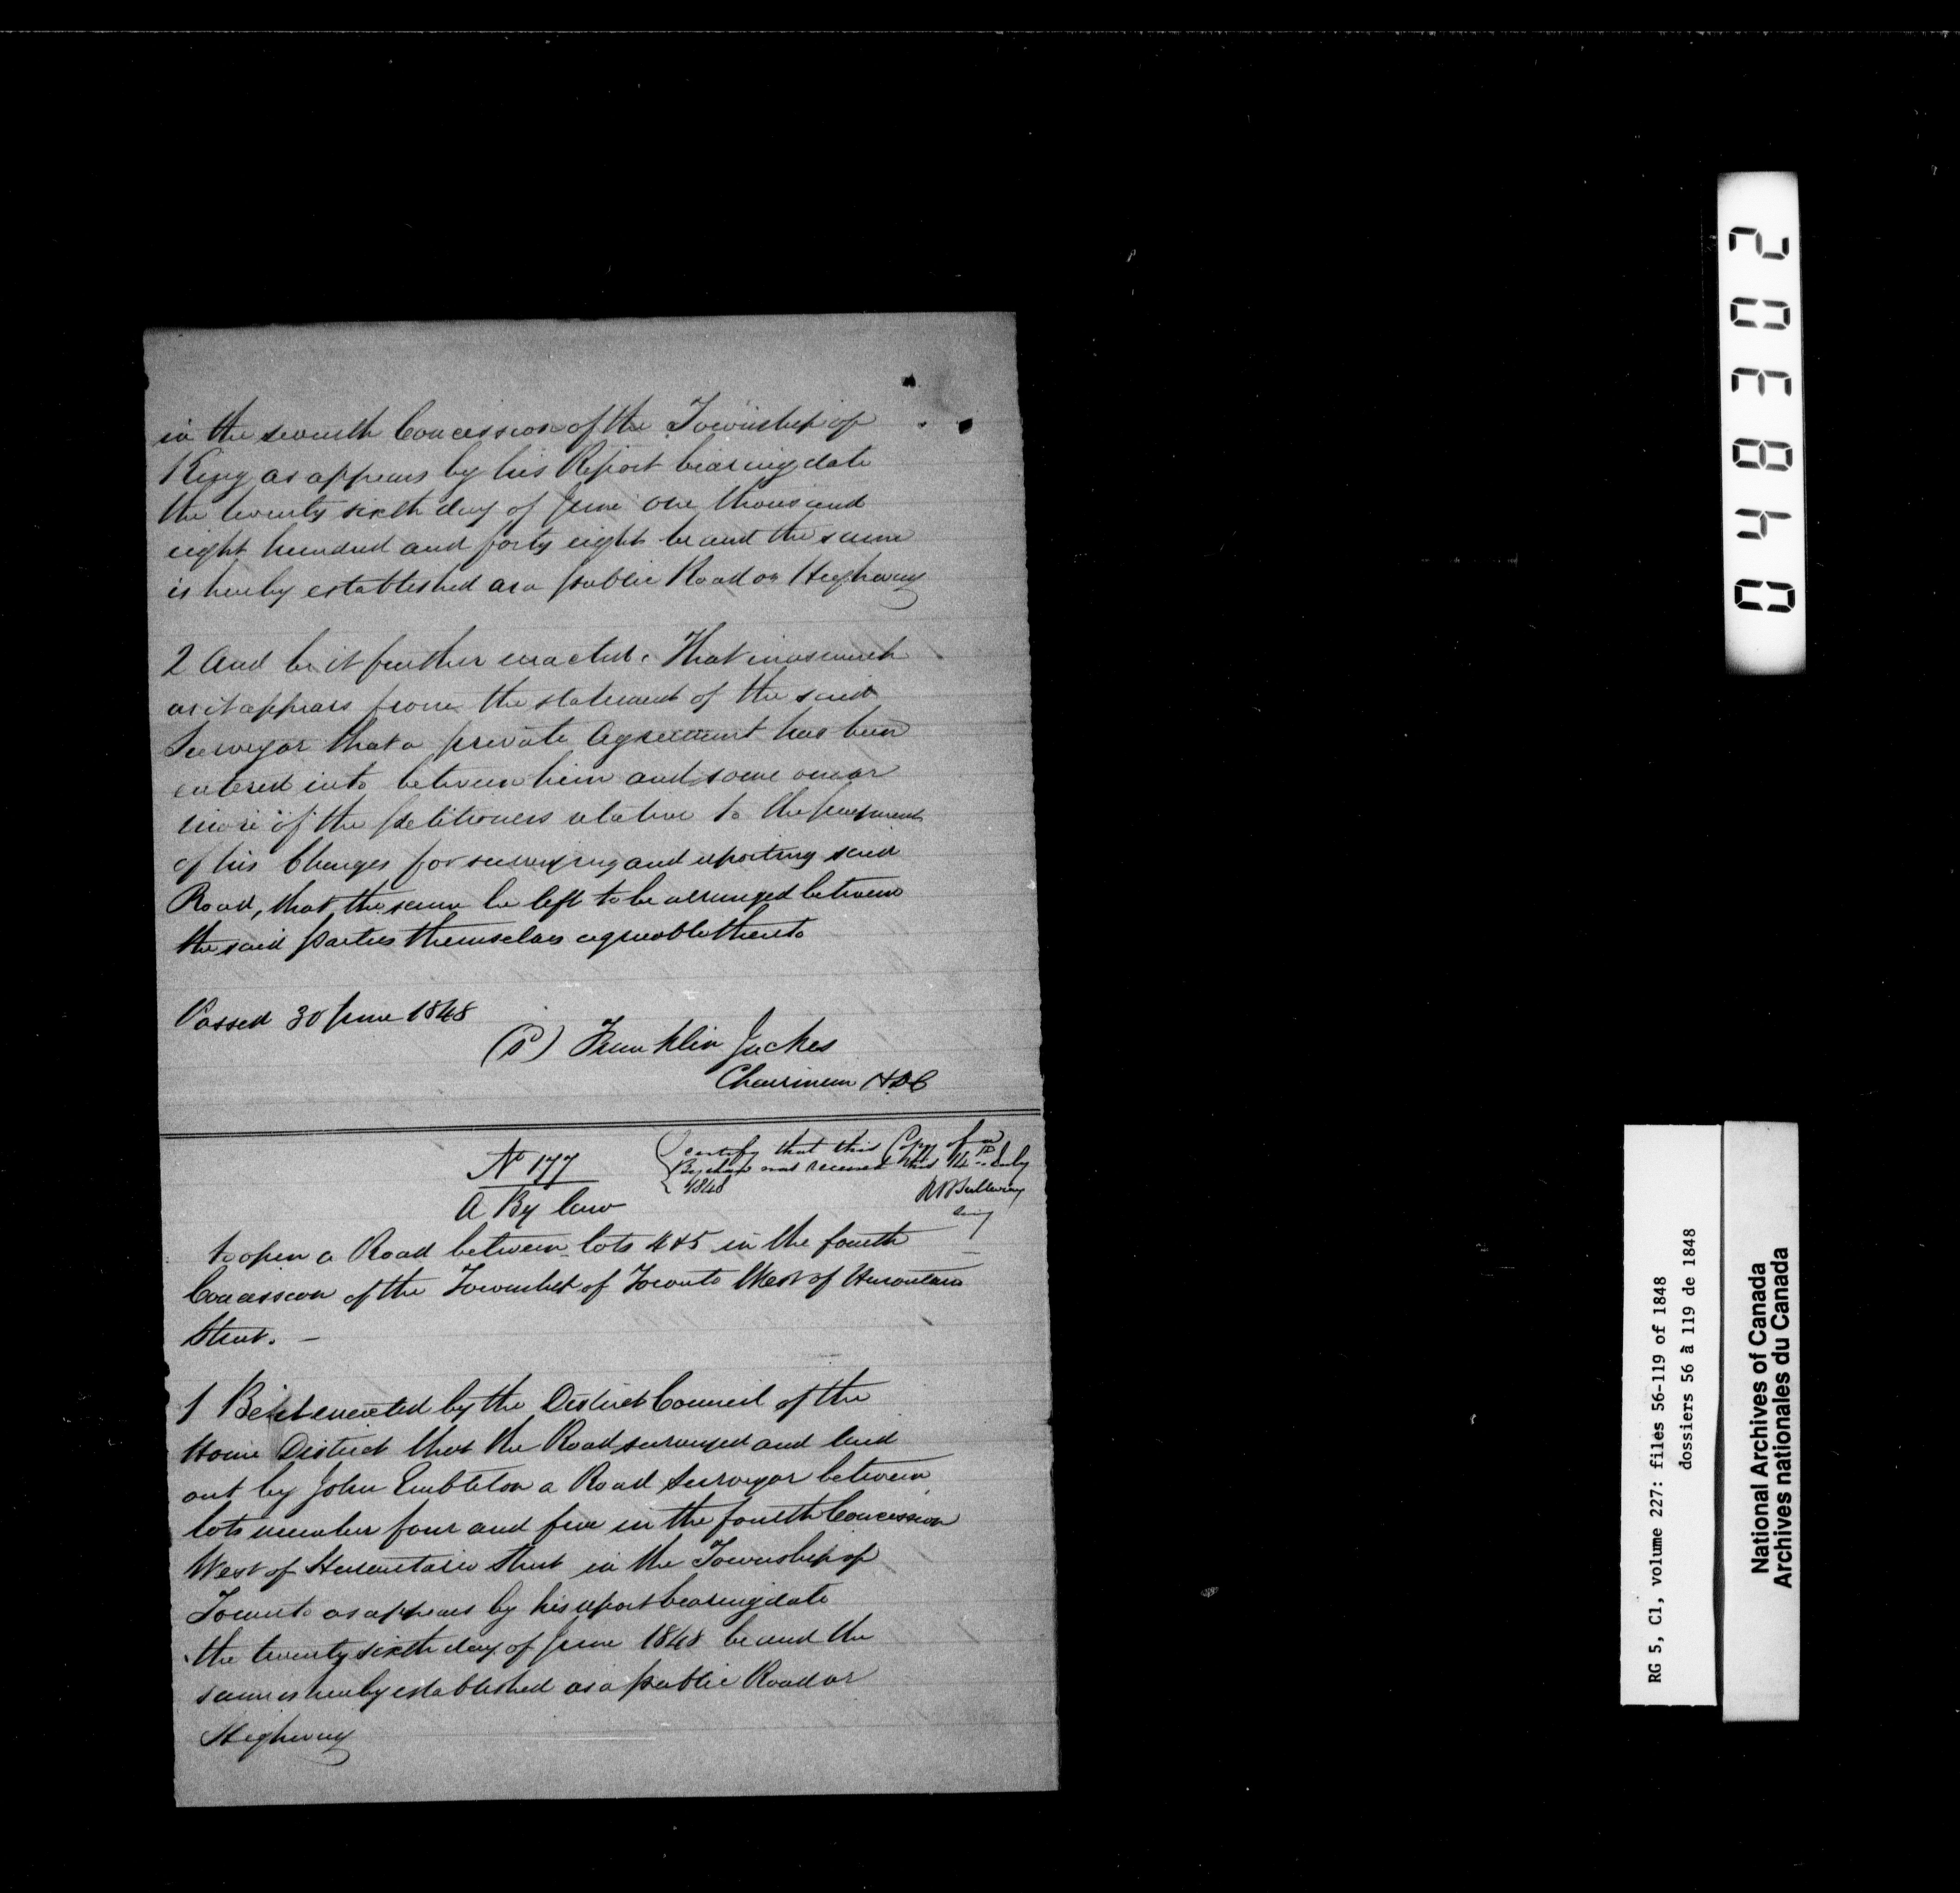 in the seventh Concession of the Township of
King as appears by his Report bearing date
the twenty sixth day of June one thousand
eight hundred and forty eight be and the same
is hereby established as a public Road or Highway
2 And be it further enacted. That inasmuch
as it appears from the statement of the said
Surveyor that a private Agreement has been
entered into between him and some one or
more of the petitioners relative to the payment
of his Charges for surveying and reporting said
Road, that the same be left to be arranged between
the said parties themselves agreeable thereto
Passed 30 June 1848
(S) Franklin Jackes
Chairman HDC
I certify that this Copy of a
By law was received this 14th July
1848
No 177
A By law
to open a Road between lots 4 & 5 in the fourth
Concession of the Township of Toronto West of Hurontario
Street. —
1 Be it enacted by the District Council of the
Home District that the Road surveyed and laid
out by John Embleton a Road Surveyor between
lots number four and five in the fourth Concession
West of Hurontario Street in the Township of
Toronto as appears by his report bearing date
the twenty sixth day of June 1848 be and the
same is hereby established as a public Road or
Highway
048302
RG 5, C1, volume 227: files 56-119 of 1848
dossiers 56 à 119 de 1848
National Archives of Canada
Archives nationales du Canada